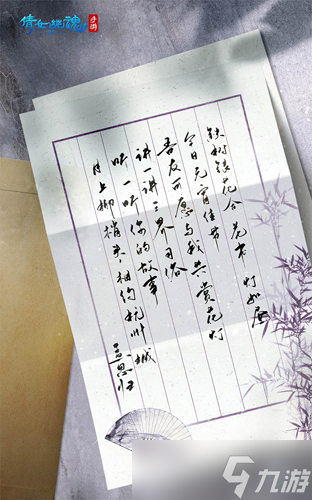 倩女幽魂
手游
铁树银花合 花市灯如昼
今日元宵佳节
吾友可愿与我共赏花灯
讲一讲三界习俗
听一听你的故事
月上柳梢头,相约杭州城
九游